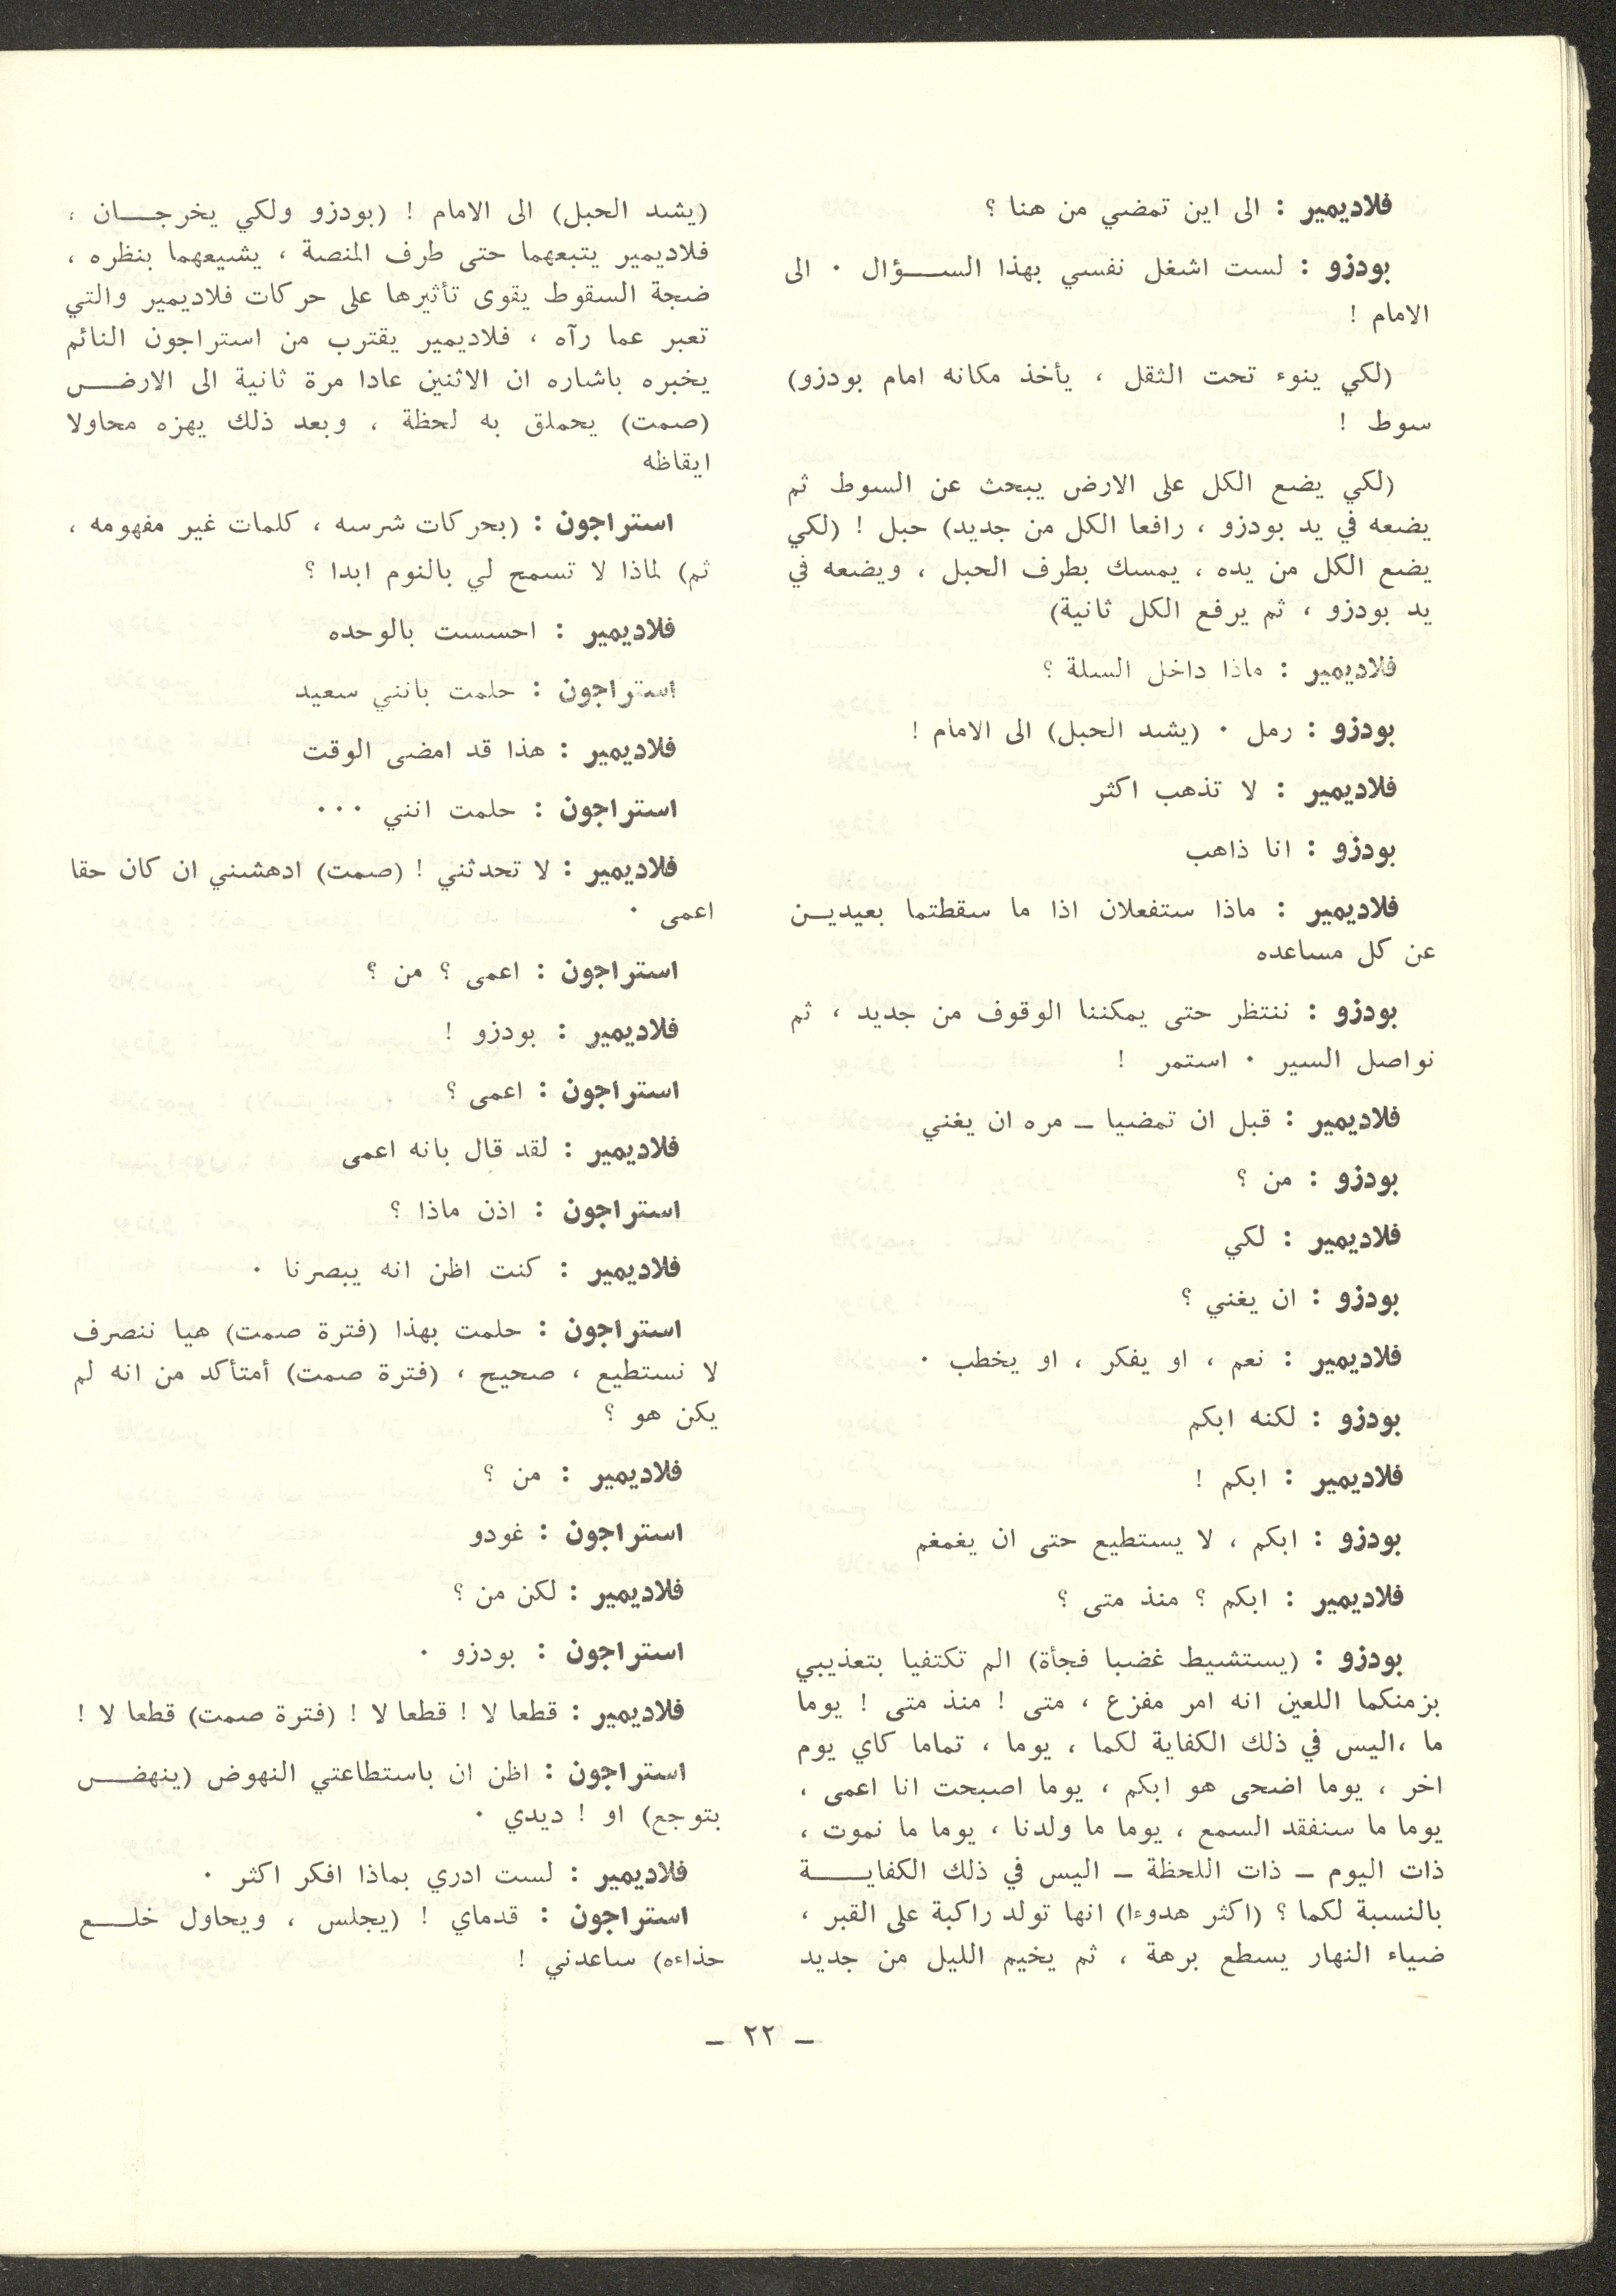 فلاديمير : الى اين تمضي من هنا ؟
بودزو : لست اشغل نفسي بهذا الســـؤال ٠ الى
الامام !
(لكي ينوء تحت الثقل ، يأخذ مكانه امام بودزو)
سوط !
(لكي يضع الكل على الارض يبحث عن السوط ثم
يضعه في يد بودزو ، رافعا الكل من جديد) حبل ! (لكي
يضع الكل من يده ، يمسك بطرف الحبل ، ويضعه في
يد بودزو ، ثم يرفع الكل ثانية)
فلاديمير : ماذا داخل السلة ؟
بودزو : رمل ٠ (يشد الحبل) الى الامام !
فلاديمير : لا تذهب اكثر
بودزو : انا ذاهب
فلاديمير : ماذا ستفعلان اذا ما سقطتما بعيديــن
عن كل مساعده
بودزو : ننتظر حتى يمكننا الوقوف من جديد ، ثم
نواصل السير ٠ استمر !
فلاديمير : قبل ان تمضيا ـ مره ان يغني
بودزو : من ؟
فلاديمير : لكي
بودزو : ان يغني ؟
فلاديمير : نعم ، او يفكر ، او يخطب ٠
بودزو : لكنه ابكم
فلاديمير : ابكم !
بودزو : ابكم ، لا يستطيع حتى ان يغمغم
فلاديمير : ابكم ؟ منذ متى ؟
بودزو : (يستشيط غضبا فجأة) الم تكتفيا بتعذيبي
بزمنكما اللعين انه امر مفزع ، متى ! منذ متى ! يوما
ما ،اليس في ذلك الكفاية لكما ، يوما ، تماما كاي يوم
اخر ، يوما اضحى هو ابكم ، يوما اصبحت انا اعمى ،
يوما ما سنفقد السمع ، يوما ما ولدنا ، يوما ما نموت ،
ذات اليوم ـ ذات اللحظة ـ اليس في ذلك الكفايـــة
بالنسبة لكما ؟ (اكثر هدوءا) انها تولد راكبة على القبر ،
ضياء النهار يسطع برهة ، ثم يخيم الليل من جديد
(يشد الحبل) الى الامام ! (بودزو ولكي يخرجـــان ،
فلاديمير يتبعهما حتى طرف المنصة ، يشيعهما بنظره ،
ضجة السقوط يقوى تأثيرها على حركات فلاديمير والتي
تعبر عما رآه ، فلاديمير يقترب من استراجون النائم
يخبره باشاره ان الاثنين عادا مرة ثانية الى الارضـــ
(صمت) يحملق به لحظة ، وبعد ذلك يهزه محاولا
ايقاظه
استراجون : (بحركات شرسه ، كلمات غير مفهومه ،
ثم) لماذا لا تسمح لي بالنوم ابدا ؟
فلاديمير : احسست بالوحده
استراجون : حلمت بانني سعيد
فلاديمير : هذا قد امضى الوقت
استراجون : حلمت انني ٠٠٠
فلاديمير : لا تحدثني ! (صمت) ادهشني ان كان حقا
اعمى ٠
استراجون : اعمى ؟ من ؟
فلاديمير : بودزو !
استراجون : اعمى ؟
فلاديمير : لقد قال بانه اعمى
استراجون : اذن ماذا ؟
فلاديمير : كنت اظن انه يبصرنا ٠
استراجون : حلمت بهذا (فترة صمت) هيا ننصرف
لا نستطيع ، صحيح ، (فترة صمت) أمتأكد من انه لم
يكن هو ؟
فلاديمير : من ؟
استراجون : غودو
فلاديمير : لكن من ؟
استراجون : بودزو ٠
فلاديمير : قطعا لا ! قطعا لا ! (فترة صمت) قطعا لا !
استراجون : اظن ان باستطاعتي النهوض (ينهضــ
بتوجع) او ! ديدي ٠
فلاديمير : لست ادري بماذا افكر اكثر ٠
استراجون : قدماي ! (يجلس ، ويحاول خلـــع
حذاءه) ساعدني !
ـ ٢٢ ـ